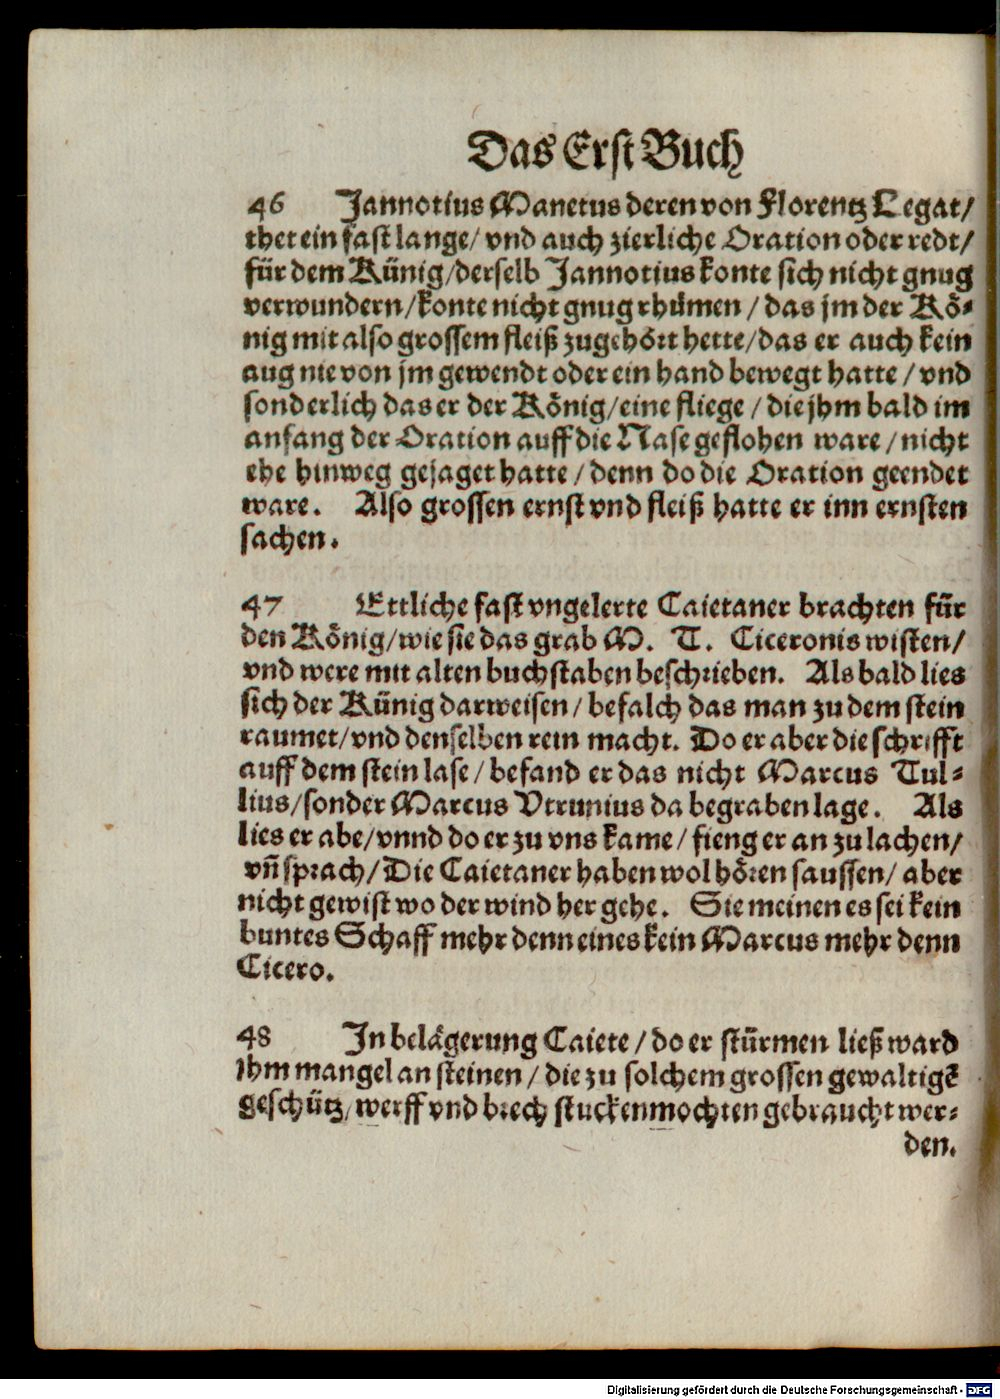 Das Erst Buch
46 Jannotius Manetus deren von Florentz Legat/
thet ein fast lange/ vnd auch zierliche Oration oder redt/
für dem Künig/derselb Jannotius konte sich nicht gnug
verwundern/konte nicht gnug rhümen / das jm der Kö-
nig mit also grossem fleiß zugehört hette/das er auch kein
aug nie von jm gewendt oder ein hand bewegt hatte / vnd
sonderlich das er der König/eine fliege / die jhm bald im
anfang der Oration auff die Nase geflohen ware / nicht
ehe hinweg gejaget hatte / denn do die Oration geendet
ware. Also grossen ernst vnd fleiß hatte er inn ernsten
sachen.
47 Ettliche fast vngelerte Caietaner brachten für
den König/wie sie das grab M. T. Ciceronis wisten/
vnd were mit alten buchstaben beschrieben. Als bald lies
sich der Künig darweisen / befalch das man zu dem stein
raumet/vnd denselben rein macht. Do er aber die schrifft
auff dem stein lase / befand er das nicht Marcus Tul-
lius/sonder Marcus Vtrunius da begraben lage. Als
lies er abe/vnnd do er zu vns kame / fieng er an zu lachen/
vñ sprach/Die Caietaner haben wol hören saussen/ aber
nicht gewist wo der wind her gehe. Sie meinen es sei kein
buntes Schaff mehr denn eines kein Marcus mehr denn
Cicero.
48 In belägerung Caiete / do er stürmen ließ ward
Ihm mangel an steinen / die zu solchem grossen gewaltigẽ
geschütz/ werff vnd brech stucken mochten gebraucht wer-
den.
Digitalisierung gefördert durch die Deutsche Forschungsgemeinschaft - DFG